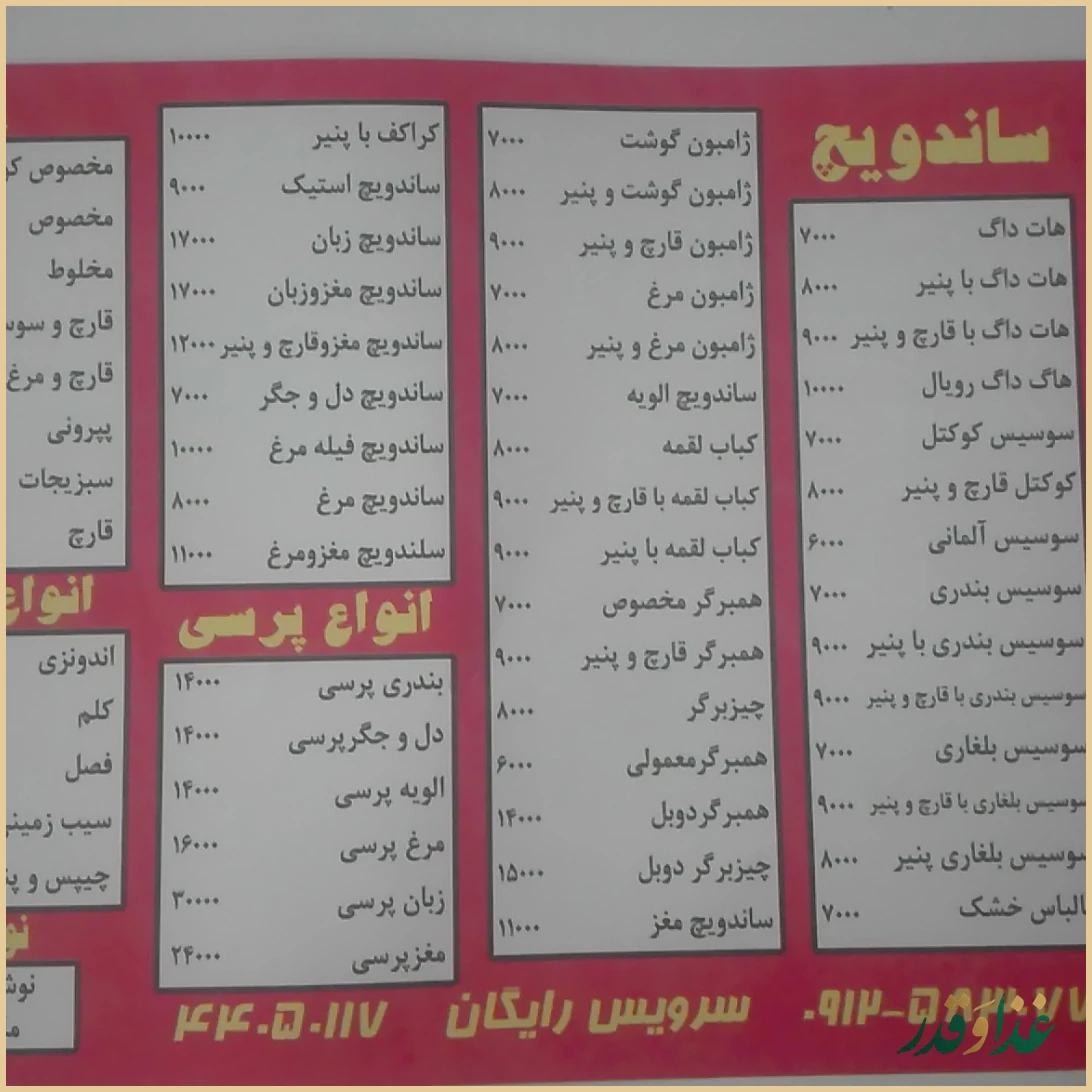 ساندویچ
هات داگ ۷۰۰۰
هات داگ با پنیر ۸۰۰۰
هات داگ با قارچ و پنیر ۹۰۰۰
هاگ داگ رویال ۱۰۰۰۰
سوسیس کوکتل ۷۰۰۰
کوکتل قارچ و پنیر ۸۰۰۰
سوسیس آلمانی ۶۰۰۰
سوسیس بندری ۷۰۰۰
سوسیس بندری با پنیر ۹۰۰۰
سوسیس بندری با قارچ و پنیر ۹۰۰۰
سوسیس بلغاری ۷۰۰۰
سوسیس بلغاری با قارچ و پنیر ۹۰۰۰
سوسیس بلغاری پنیر ۸۰۰۰
خشک ۷۰۰۰
ژامبون گوشت ۷۰۰۰
ژامبون گوشت و پنیر ۸۰۰۰
ژامبون قارچ و پنیر ۹۰۰۰
ژامبون مرغ ۷۰۰۰
ژامبون مرغ و پنیر ۸۰۰۰
ساندویچ الویه ۷۰۰۰
کباب لقمه ۸۰۰۰
کباب لقمه با قارچ و پنیر ۹۰۰۰
کباب لقمه با پنیر ۹۰۰۰
همبرگر مخصوص ۷۰۰۰
همبرگر قارچ و پنیر ۹۰۰۰
چیزبرگر ۸۰۰۰
همبرگرمعمولی ۶۰۰۰
همبرگردوبل ۱۴۰۰۰
چیزبرگر دوبل ۱۵۰۰۰
ساندویچ مغز ۱۱۰۰۰
کراکف با پنیر ۱۰۰۰۰
ساندویچ استیک ۹۰۰۰
ساندویچ زبان ۱۷۰۰۰
ساندویچ مغزوزبان ۱۷۰۰۰
ساندویچ مغزوقارچ و پنیر ۱۲۰۰۰
ساندویچ دل و جگر ۷۰۰۰
ساندویچ فیله مرغ ۱۰۰۰۰
ساندویچ مرغ ۸۰۰۰
سلندویچ مغزومرغ ۱۱۰۰۰
انواع پرسی
بندری پرسی ۱۴۰۰۰
دل و جگرپرسی ۱۴۰۰۰
الویه پرسی ۱۴۰۰۰
مرغ پرسی ۱۶۰۰۰
زبان پرسی ۳۰۰۰۰
مغزپرسی ۲۴۰۰۰
مخصوص
مخصوص
مخلوط
قارچ و
قارچ و مرغ
پپرونی
سبزیجات
قارچ
انواع
اندونزی
کلم
فصل
سیب
چیپس و
سرویس رایگان ۴۴۰۵۰۱۱۷
غذا و قدر